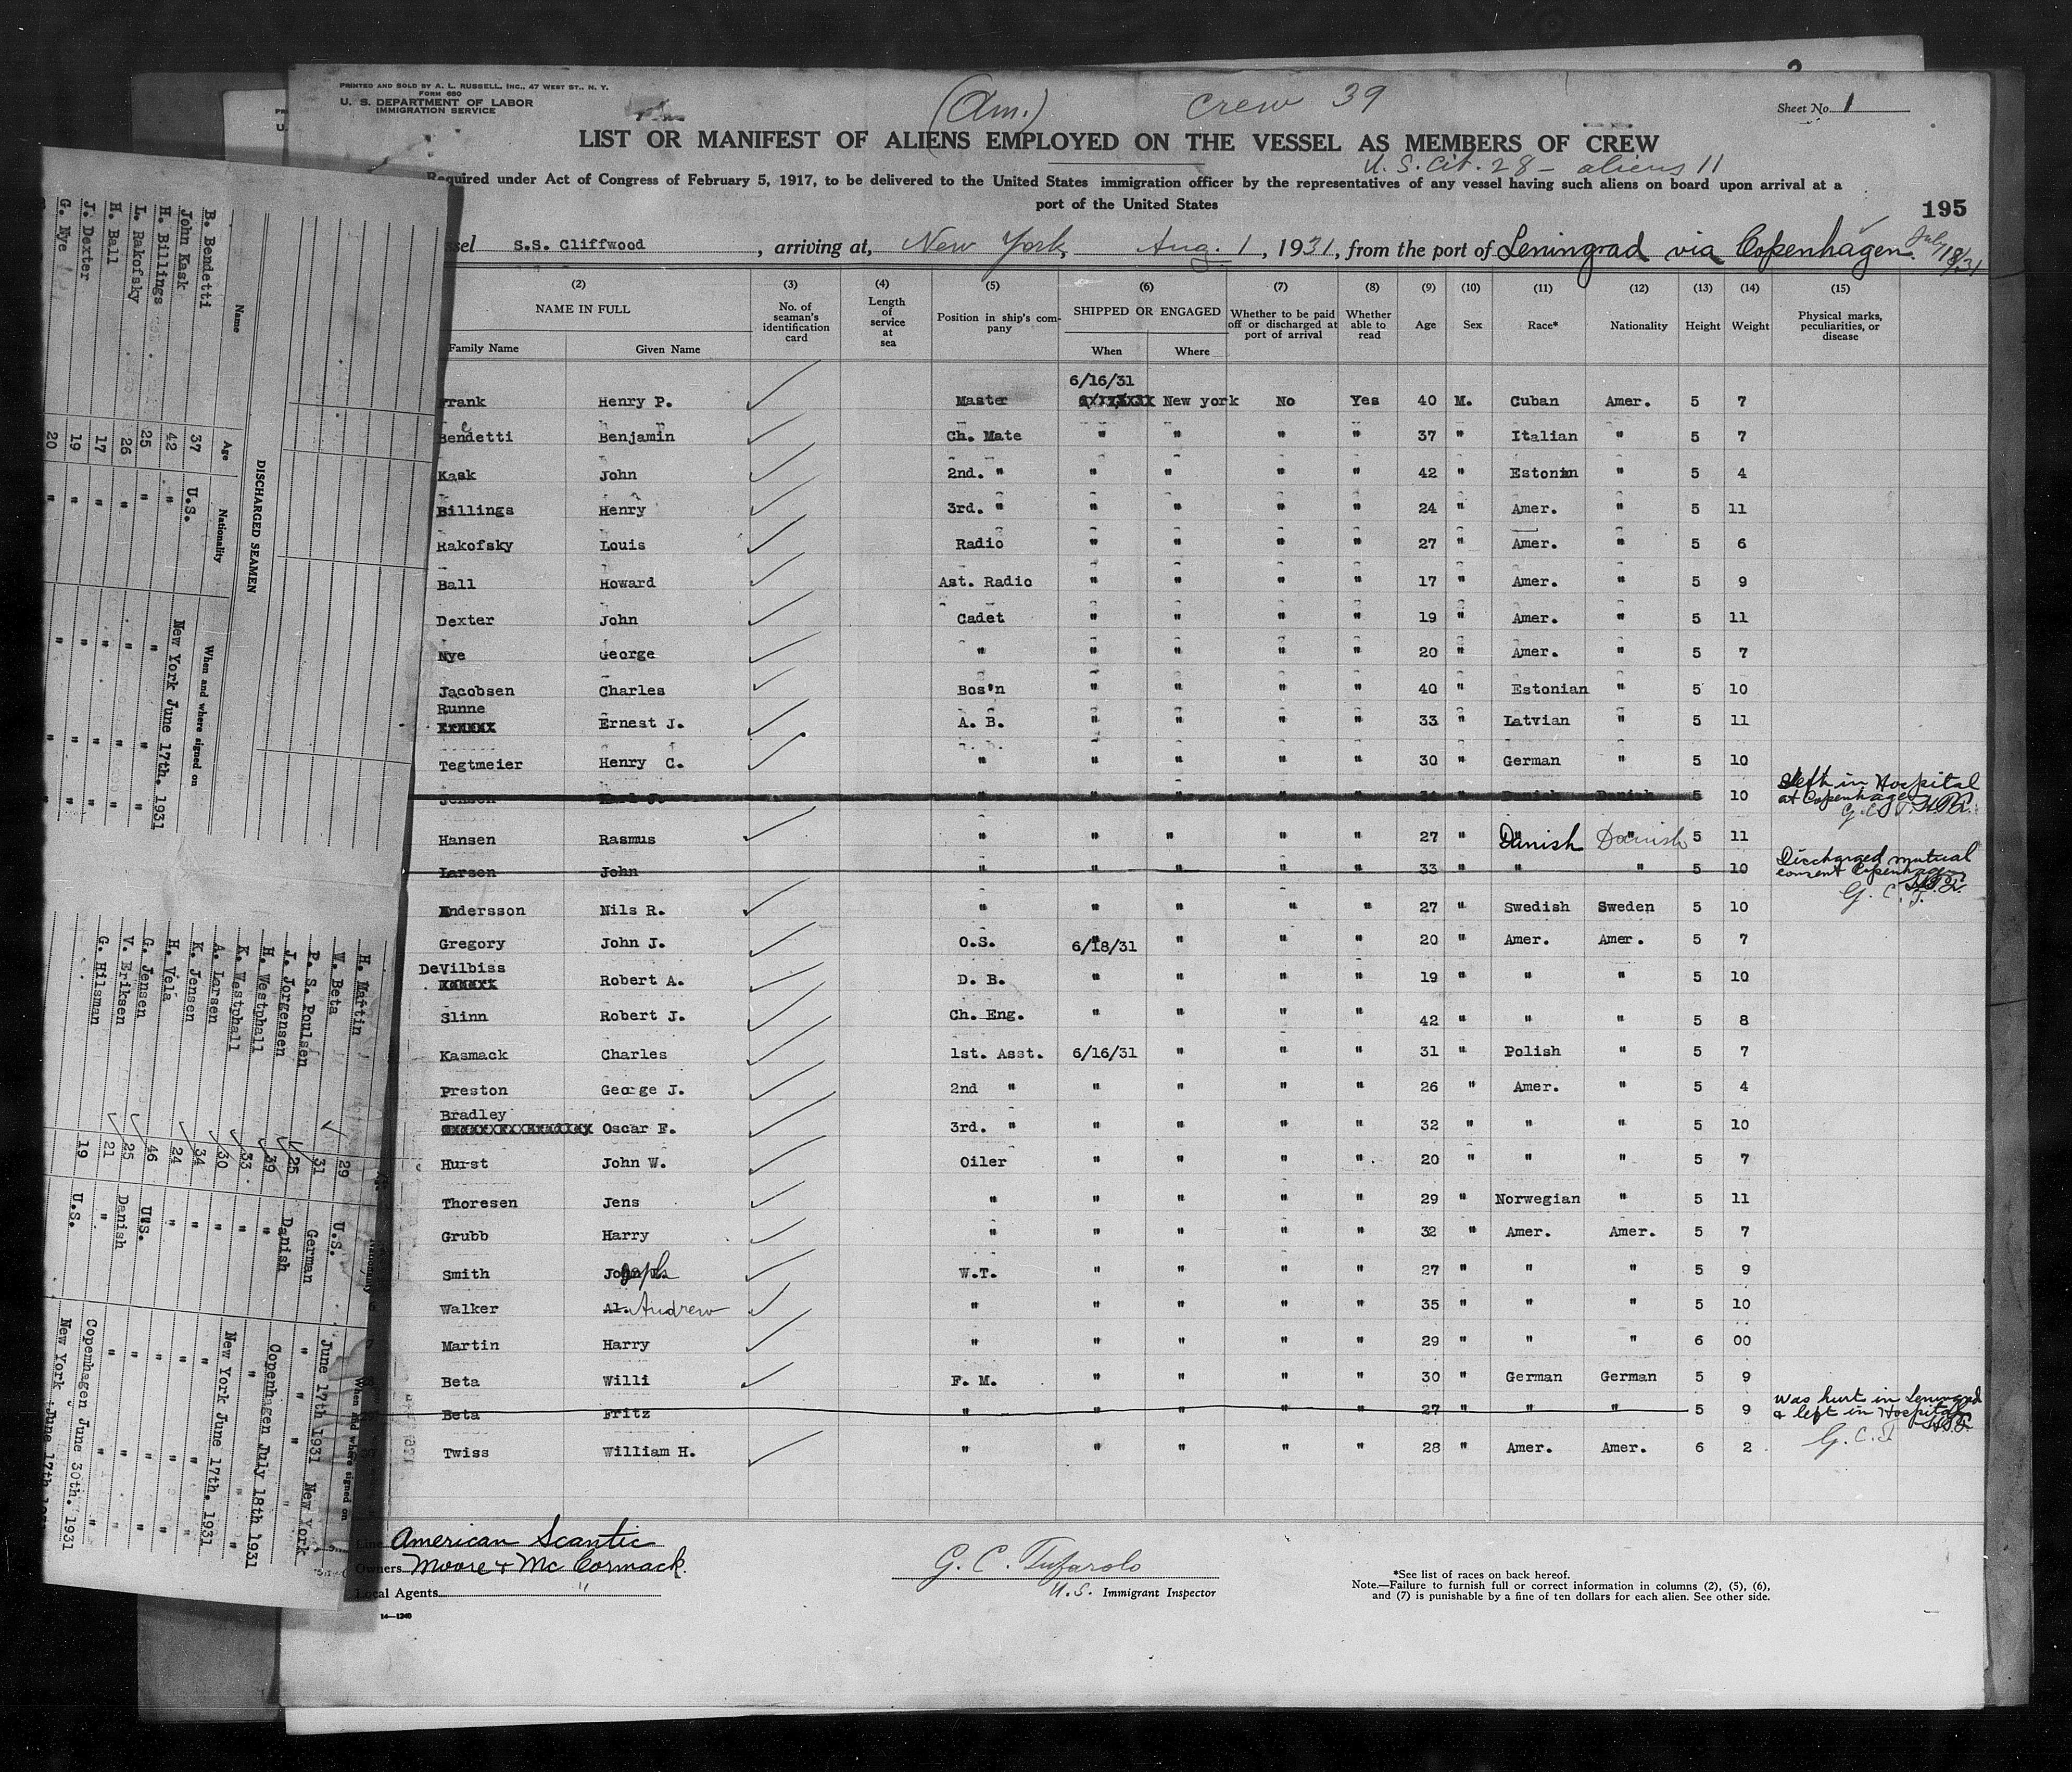 PRINTED AND SOLD BY A. L. RUSSELL, INC., 47 WEST ST., N. Y.
FORM 680
U. S. DEPARTMENT OF LABOR
IMMIGRATION SERVICE
(Am.) Crew 39
Sheet No. 1
LIST OR MANIFEST OF ALIENS EMPLOYED ON THE VESSEL AS MEMBERS OF CREW
U.S. Cit. 28 - aliens 11
Required under Act of Congress of February 5, 1917, to be delivered to the United States immigration officer by the representatives of any vessel having such aliens on board upon arrival at a
port of the United States
195
S.S. Cliffwood, arriving at, New York, Aug. 1, 1931, from the port of Leningrad via Copenhagen. July 18/31
(2) (3) (4) (5) (6) (7) (8) (9) (10) (11) (12) (13) (14) (15)
NAME IN FULL No. of seaman's identification card Length of service at sea Position in ship's company SHIPPED OR ENGAGED Whether to be paid off or discharged at port of arrival Whether able to read Age Sex Race* Nationality Height Weight Physical marks, peculiarities, or disease
Family Name Given Name When Where
6/16/31
Frank Henry P. Master New york No Yes 40 M. Cuban Amer. 5 7
Bendetti Benjamin Ch. Mate " " " " 37 " Italian " 5 7
Kask John 2nd. " " " " " 42 " Estonian " 5 4
Billings Henry 3rd. " " " " " 24 " Amer. " 5 11
Rakofsky Louis Radio " " " " 27 " Amer. " 5 6
Ball Howard Ast. Radio " " " " 17 " Amer. " 5 9
Dexter John Cadet " " " " 19 " Amer. " 5 11
Nye George " " " " " 20 " Amer. " 5 7
Jacobsen Charles Bos'n " " " " 40 " Estonian " 5 10
Runne
Ernest J. A. B. " " " " 33 " Latvian " 5 11
Tegtmeier Henry C. " " " " " 30 " German " 5 10
Jensen Karl J. " " " " " 34 " Danish Danish 5 10 left in Hospital
at Copenhagen
Hansen Rasmus " " " " " 27 " Danish Danish 5 11
Larsen John " " " " " 33 " " " 5 10 Discharged mutual
consent Copenhagen
Andersson Nils R. " " " " " 27 " Swedish Sweden 5 10
Gregory John J. O.S. 6/18/31 " " " 20 " Amer. Amer. 5 7
DeVilbiss
Robert A. D. B. " " " " 19 " " " 5 10
Slinn Robert J. Ch. Eng. " " " " 42 " " " 5 8
Kasmack Charles 1st. Asst. 6/16/31 " " " 31 " Polish " 5 7
Preston George J. 2nd " " " " " 26 " Amer. " 5 4
Bradley
Oscar F. 3rd. " " " " " 32 " " " 5 10
Hurst John W. Oiler " " " " 20 " " " 5 7
Thoresen Jens " " " " " 29 " Norwegian " 5 11
Grubb Harry " " " " " 32 " Amer. Amer. 5 7
Smith Joseph W.T. " " " " 27 " " " 5 9
Walker Al. Andrew " " " " " 35 " " " 5 10
Martin Harry " " " " " 29 " " " 6 00
Beta Willi F. M. " " " " 30 " German German 5 9
Beta Fritz " " " " " 27 " " " 5 9 was hurt in Leningrad
& left in Hospital
G. C. T.
Twiss William H. " " " " " 28 " Amer. Amer. 6 2
Line American Scantic
Owners Moore & McCormack
Local Agents "
14-1240
G. C. Tufarolo
U.S. Immigrant Inspector
*See list of races on back hereof.
Note.—Failure to furnish full or correct information in columns (2), (5), (6),
and (7) is punishable by a fine of ten dollars for each alien. See other side.
DISCHARGED SEAMEN
Name Age Nationality When and where signed on
B. Bendetti 37 U.S. New York June 17th. 1931
John Kask 42 " "
H. Billings
L. Rakofsky 25 " " " "
H. Ball 26 " " " "
J. Dexter 17 " " " "
G. Nye 19 " " " "
20 " " " "
H. Martin 29 U.S. June 17th 1931 New York
W. Beta 31 German " " "
P. S. Poulsen 25 Danish Copenhagen July 18th 1931
J. Jorgensen 39 " " "
H. Westphall 33 " New York June 17th. 1931
K. Westphall 30 " " "
A. Larsen 34 " " "
K. Jensen 24 " " "
H. Vela 46 U.S. " "
G. Jensen 25 Danish " "
V. Eriksen 21 " Copenhagen June 30th. 1931
G. Hilsman 19 U.S. New York June 17th